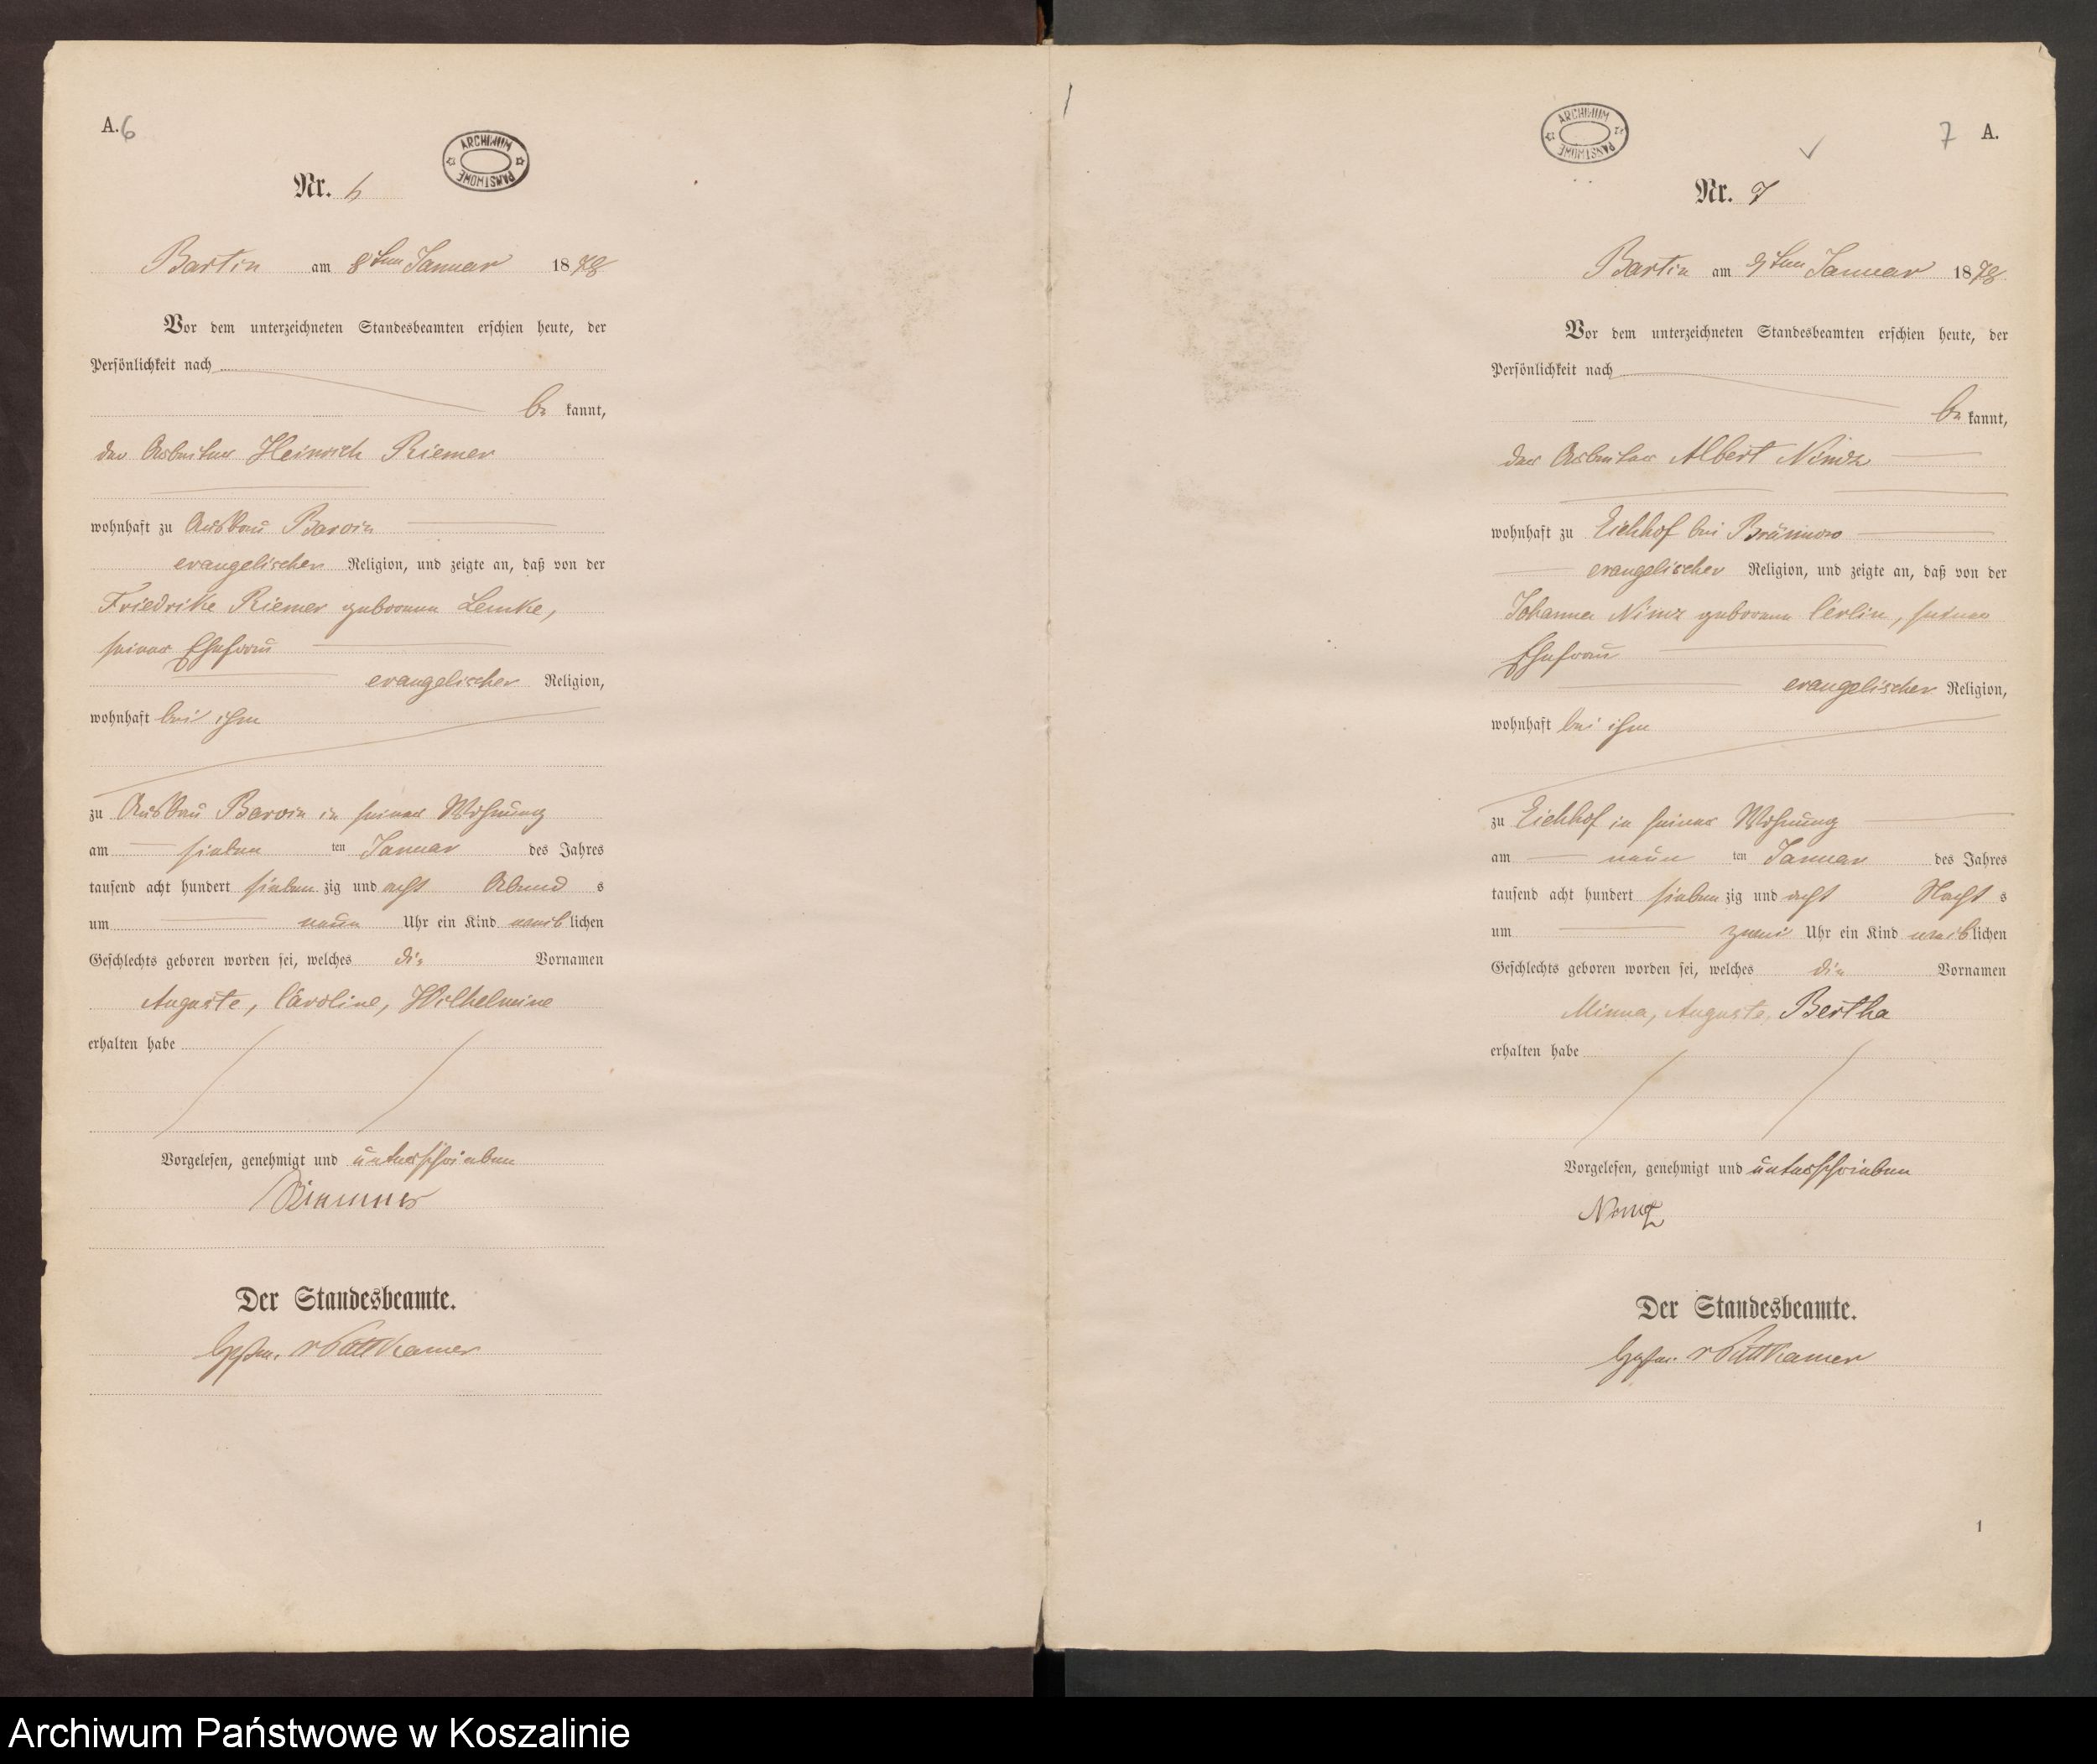 A. 6
ARCHIWUM PAŃSTWOWE
Nr. 6
Bartin am 8ten Januar 1878
Vor dem unterzeichneten Standesbeamten erschien heute, der
Persönlichkeit nach
be kannt,
der Arbeiter Heinrich Riemer
wohnhaft zu Ausbau Barvin
evangelischer Religion, und zeigte an, daß von der
Friedrike Riemer geborene Lemke,
seiner Ehefrau
evangelischer Religion,
wohnhaft bei ihm
zu Ausbau Barvin in seiner Wohnung
am sieben ten Januar des Jahres
tausend acht hundert sieben zig und acht Abend s
um neun Uhr ein Kind weib lichen
Geschlechts geboren worden sei, welches die Vornamen
Auguste, Caroline, Wilhelmine
erhalten habe
Vorgelesen, genehmigt und unterschrieben
Riemer
Der Standesbeamte.
v Puttkamer
7 A.
ARCHIWUM PAŃSTWOWE
Nr. 7
Bartin am 9ten Januar 1878
Vor dem unterzeichneten Standesbeamten erschien heute, der
Persönlichkeit nach
be kannt,
der Arbeiter Albert Nimz
wohnhaft zu Eichhof bei Brünnow
evangelischer Religion, und zeigte an, daß von der
Johanna Nimz geborene Cerlin, seiner
Ehefrau
evangelischer Religion,
wohnhaft bei ihm
zu Eichhof in seiner Wohnung
am neun ten Januar des Jahres
tausend acht hundert sieben zig und acht Nacht s
um zwei Uhr ein Kind weib lichen
Geschlechts geboren worden sei, welches die Vornamen
Minna, Auguste, Bertha
erhalten habe
Vorgelesen, genehmigt und unterschrieben
Nimz
Der Standesbeamte.
v Puttkamer
1
Archiwum Państwowe w Koszalinie